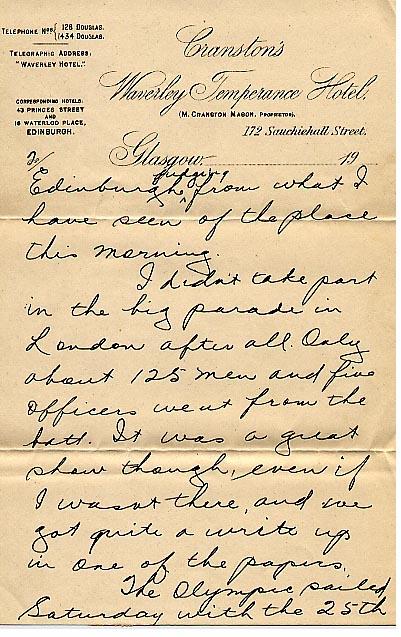 TELEPHONE Nos. { 128 DOUGLAS.
1434 DOUGLAS.
TELEGRAPHIC ADDRESS:
"WAVERLEY HOTEL."
CORRESPONDING HOTELS:
43 PRINCES STREET
AND
18 WATERLOO PLACE,
EDINBURGH.
Cranston's
Waverley Temperance Hotel.
(M. CRANSTON MASON, PROPRIETOR).
172 Sauchiehall Street.
Glasgow, 19
judging
Edinburgh, ^ from what I
have seen of the place
this morning.
I didn't take part
in the big parade in
London after all. Only
about 125 men and five
officers went from the
batt. It was a great
show though, even if
I wasn't there, and we
got quite a write up
in one of the papers.
The Olympic sailed
Saturday with the 25th